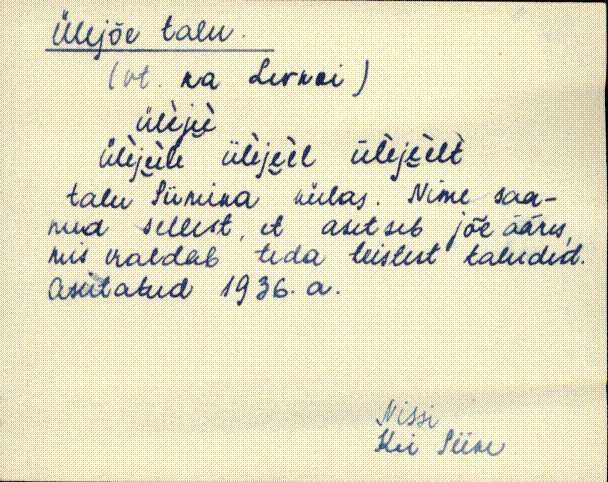 Ülejõe talu.
(vt. ka Lernoi)
ülèjȩ̀ȩ
ülèjȩ̀ȩle ülèjȩ̀ȩl ülèjȩ̀ȩlt
talu Siimika külas. Nime saa-
nud sellest, et asetseb jõe ääres,
mis eraldab teda teistest taludest.
Asutatud 1936. a.
Nissi